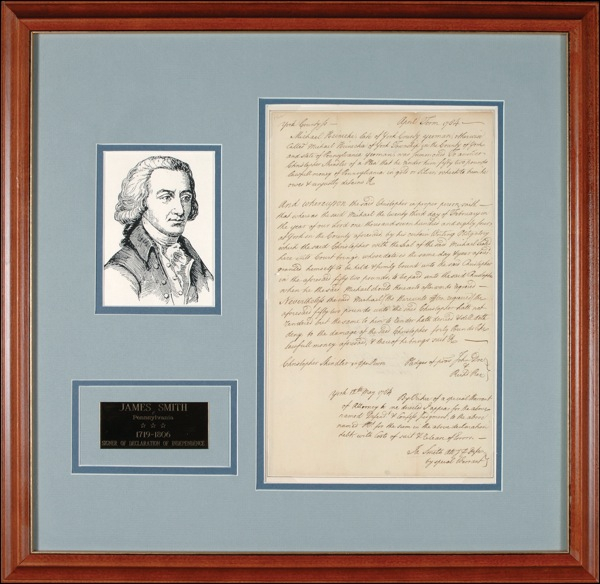 JAMES SMITH
Pennsylvania
1719-1806
SIGNER OF DECLARATION OF INDEPENDENCE
York County ss — April Term 1784 —
Michael late of York County yeoman otherwise
called Michael of York Township in the County of York
and state of Pennsylvania yeoman was summoned to answer
Christopher of a Plea that he render him fifty two pounds
lawfull money of Pennsylvania in gold or silver which to him he
owes & unjustly detains &c
And whereupon the said Christopher in proper person saith
that whereas the said Michael the twenty third day of February in
the year of our Lord one thousand seven hundred and eighty four
at York in the County aforesaid by his certain Writing Obligatory
which the said Christopher with the Seal of the said Michael
here into Court brings whose date is the same day & year afores
himself to be held & firmly bound with the said Christopher
in the aforesaid fifty two pounds to be paid unto the said Christopher
when he the said Michael should thereunto afterwards
the said Michael the often required the
aforesaid fifty two pounds with the said Christopher hath not
rendered but the same to him to render hath denied & still doth
deny to the damage of the said Christopher forty pounds like
lawfull money aforesaid, & thereof he brings suit &c
Christopher
Pledges of pros John Doe
&
Richd Roe
York 12th May 1784
By Virtue of a special Warrant
of Attorney to me directed I appear for the above
named Defend & confess Judgment to the above
named for the sum in the above declaration
with costs of suit & release of errors —
Js. Smith atty
by special Warrant